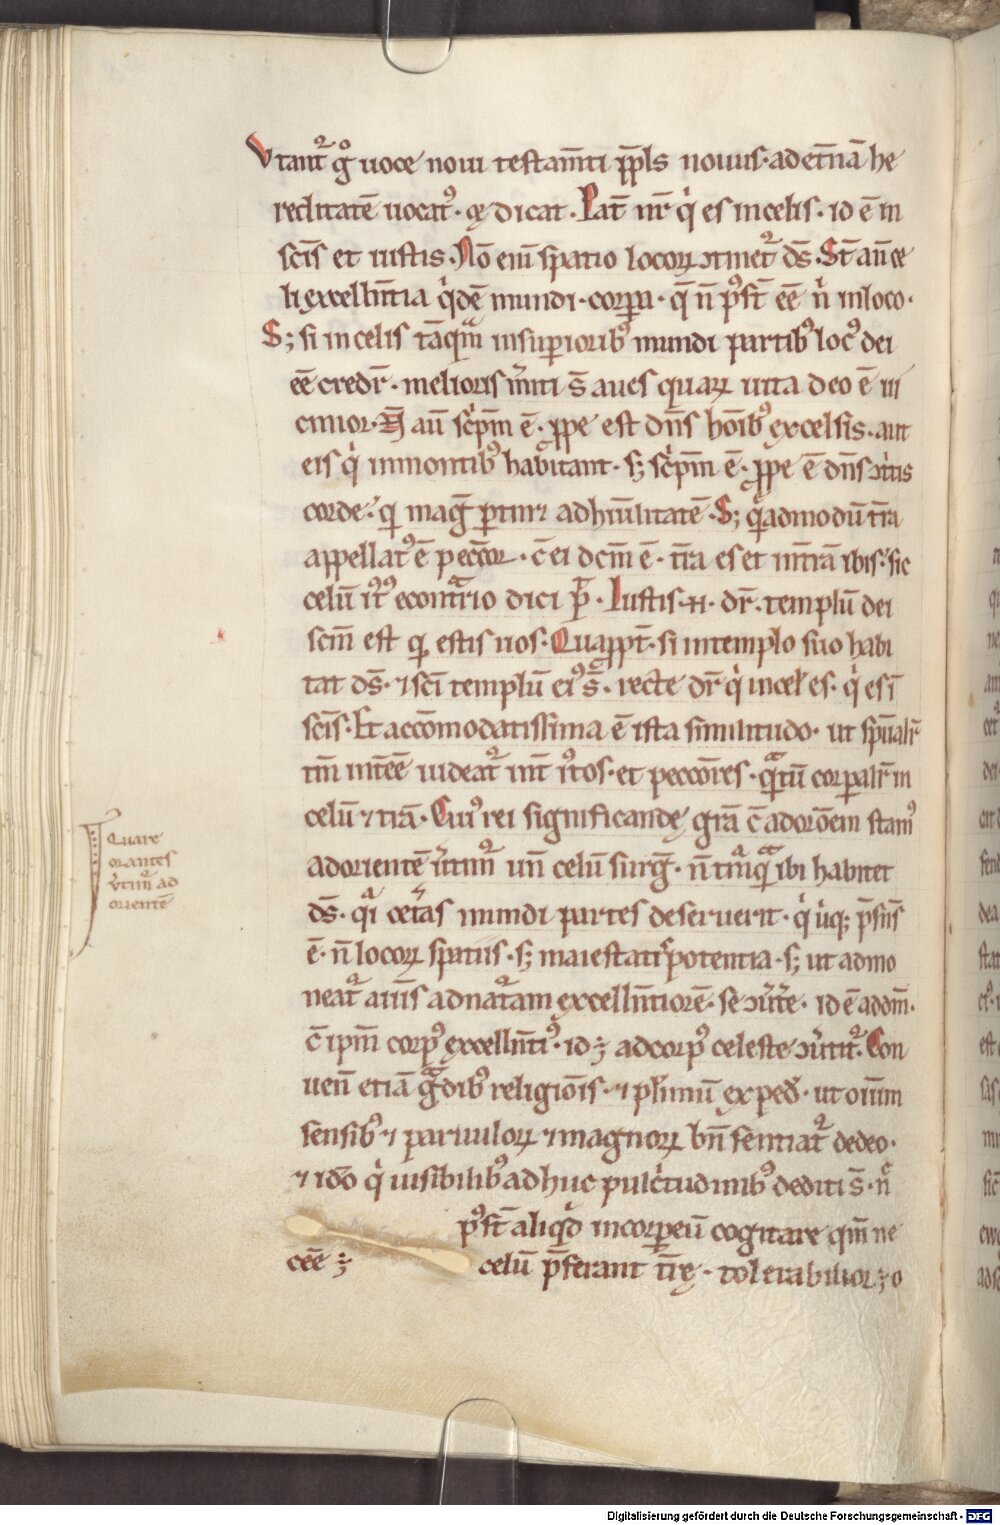 Vtant᷑ gͦ uoce noui testam̄ti pp̄ls nouus· ad et̄nā he
reditatē uocatꝰ· ⁊ dicat· Pat̄ nr̄ qͥ es in celis· id ē in
sc̄is et iustis. Nō eni᷑ spatio locoꝝ ↄtinet᷑ ds̄. St̄ aū ce
li excelln̄tia qͥdē mundi· corpa· q̄ n̄ pꝰst̄ eē nͥ in loco·
S; si in celis tāqͣm in supioribꝰ mundi partibꝰ locꝰ dei
eē credr̄· melioris mͥti s̄ aues quaꝝ uita deo ē ui
cinior· N̄ aū scͥpm̄ ē· ꝓpe est dn̄s hōibꝰ excelsis· aut
eis qͥ in montibꝰ habitant· s; scͥpm̄ ē· ꝓpe ē dn̄s ↄtͥtis
corde· qͥ mag̅ ꝑtin& ad hūilitatē· S; qͣ̄admodū t̄ra
appellatꝰ ē pecc̄or· c̄ ei dcm̄ ē· t̄ra es et in t̄rā ibis· sic
celū iꝰtꝰ econtͣrio dici p̄. Iustis· n· dr̄· templū dei
scm̄ est qͥ estis uos· Quapp̄t· si in templo suo habi
tat ds̄· ⁊ sc̄i templū eiꝰ s̄· recte dr̄ qͥ in cel̄ es· qͥ es ī
sc̄is· Et accōmodatissima ē ista similitudo· ut spūalr̄
tm̄ int̄eē uideat᷑ int̄ iꝰtos· et pecc̄ores· qͣntū corpalr̄ in
celū ⁊ t̄rā· Cuiꝰ rei significandę grā c̄ ad orōem stamꝰ
ad orientē ꝟtim᷑ un̄ celū surg̅· n̄ tāqͣ ibi habitet
ds̄· qͣi cet̄as mundi partes deseruerit· qͥ uͥq; p̄sns̄
ē· n̄ locoꝝ spatiis· s; maiestatis potentia· s; ut admo
neat᷑ aiūs ad nat᷑am excelln̄tiorē· se ↄuͥt̄e· id ē ad dm̄·
c̄ ipm̄ corpꝰ excelln̄tiꝰ· id ꝫ ad corpꝰ celeste ↄuͥtit᷑· Con
uen̄ etiā gͣdibꝰ religiōis· ⁊ plͥimū exped̄· ut oiūm
sensibꝰ ⁊ paruuloꝝ ⁊ magnoꝝ bn̄ sentiat᷑ de deo·
⁊ idō qͥ uisibilibꝰ adhuc pulcͥtudinibꝰ dediti s̄· nͨ
pꝰst̄ aliqͥd incorpeū cogitare qm̄ ne
cēē ꝫ celū p̄ferant t̄rę· tolerabilior ꝫ o
Quare
orantes
ꝟtim᷑ ad
orientē
Digitalisierung gefördert durch die Deutsche Forschungsgemeinschaft - DFG